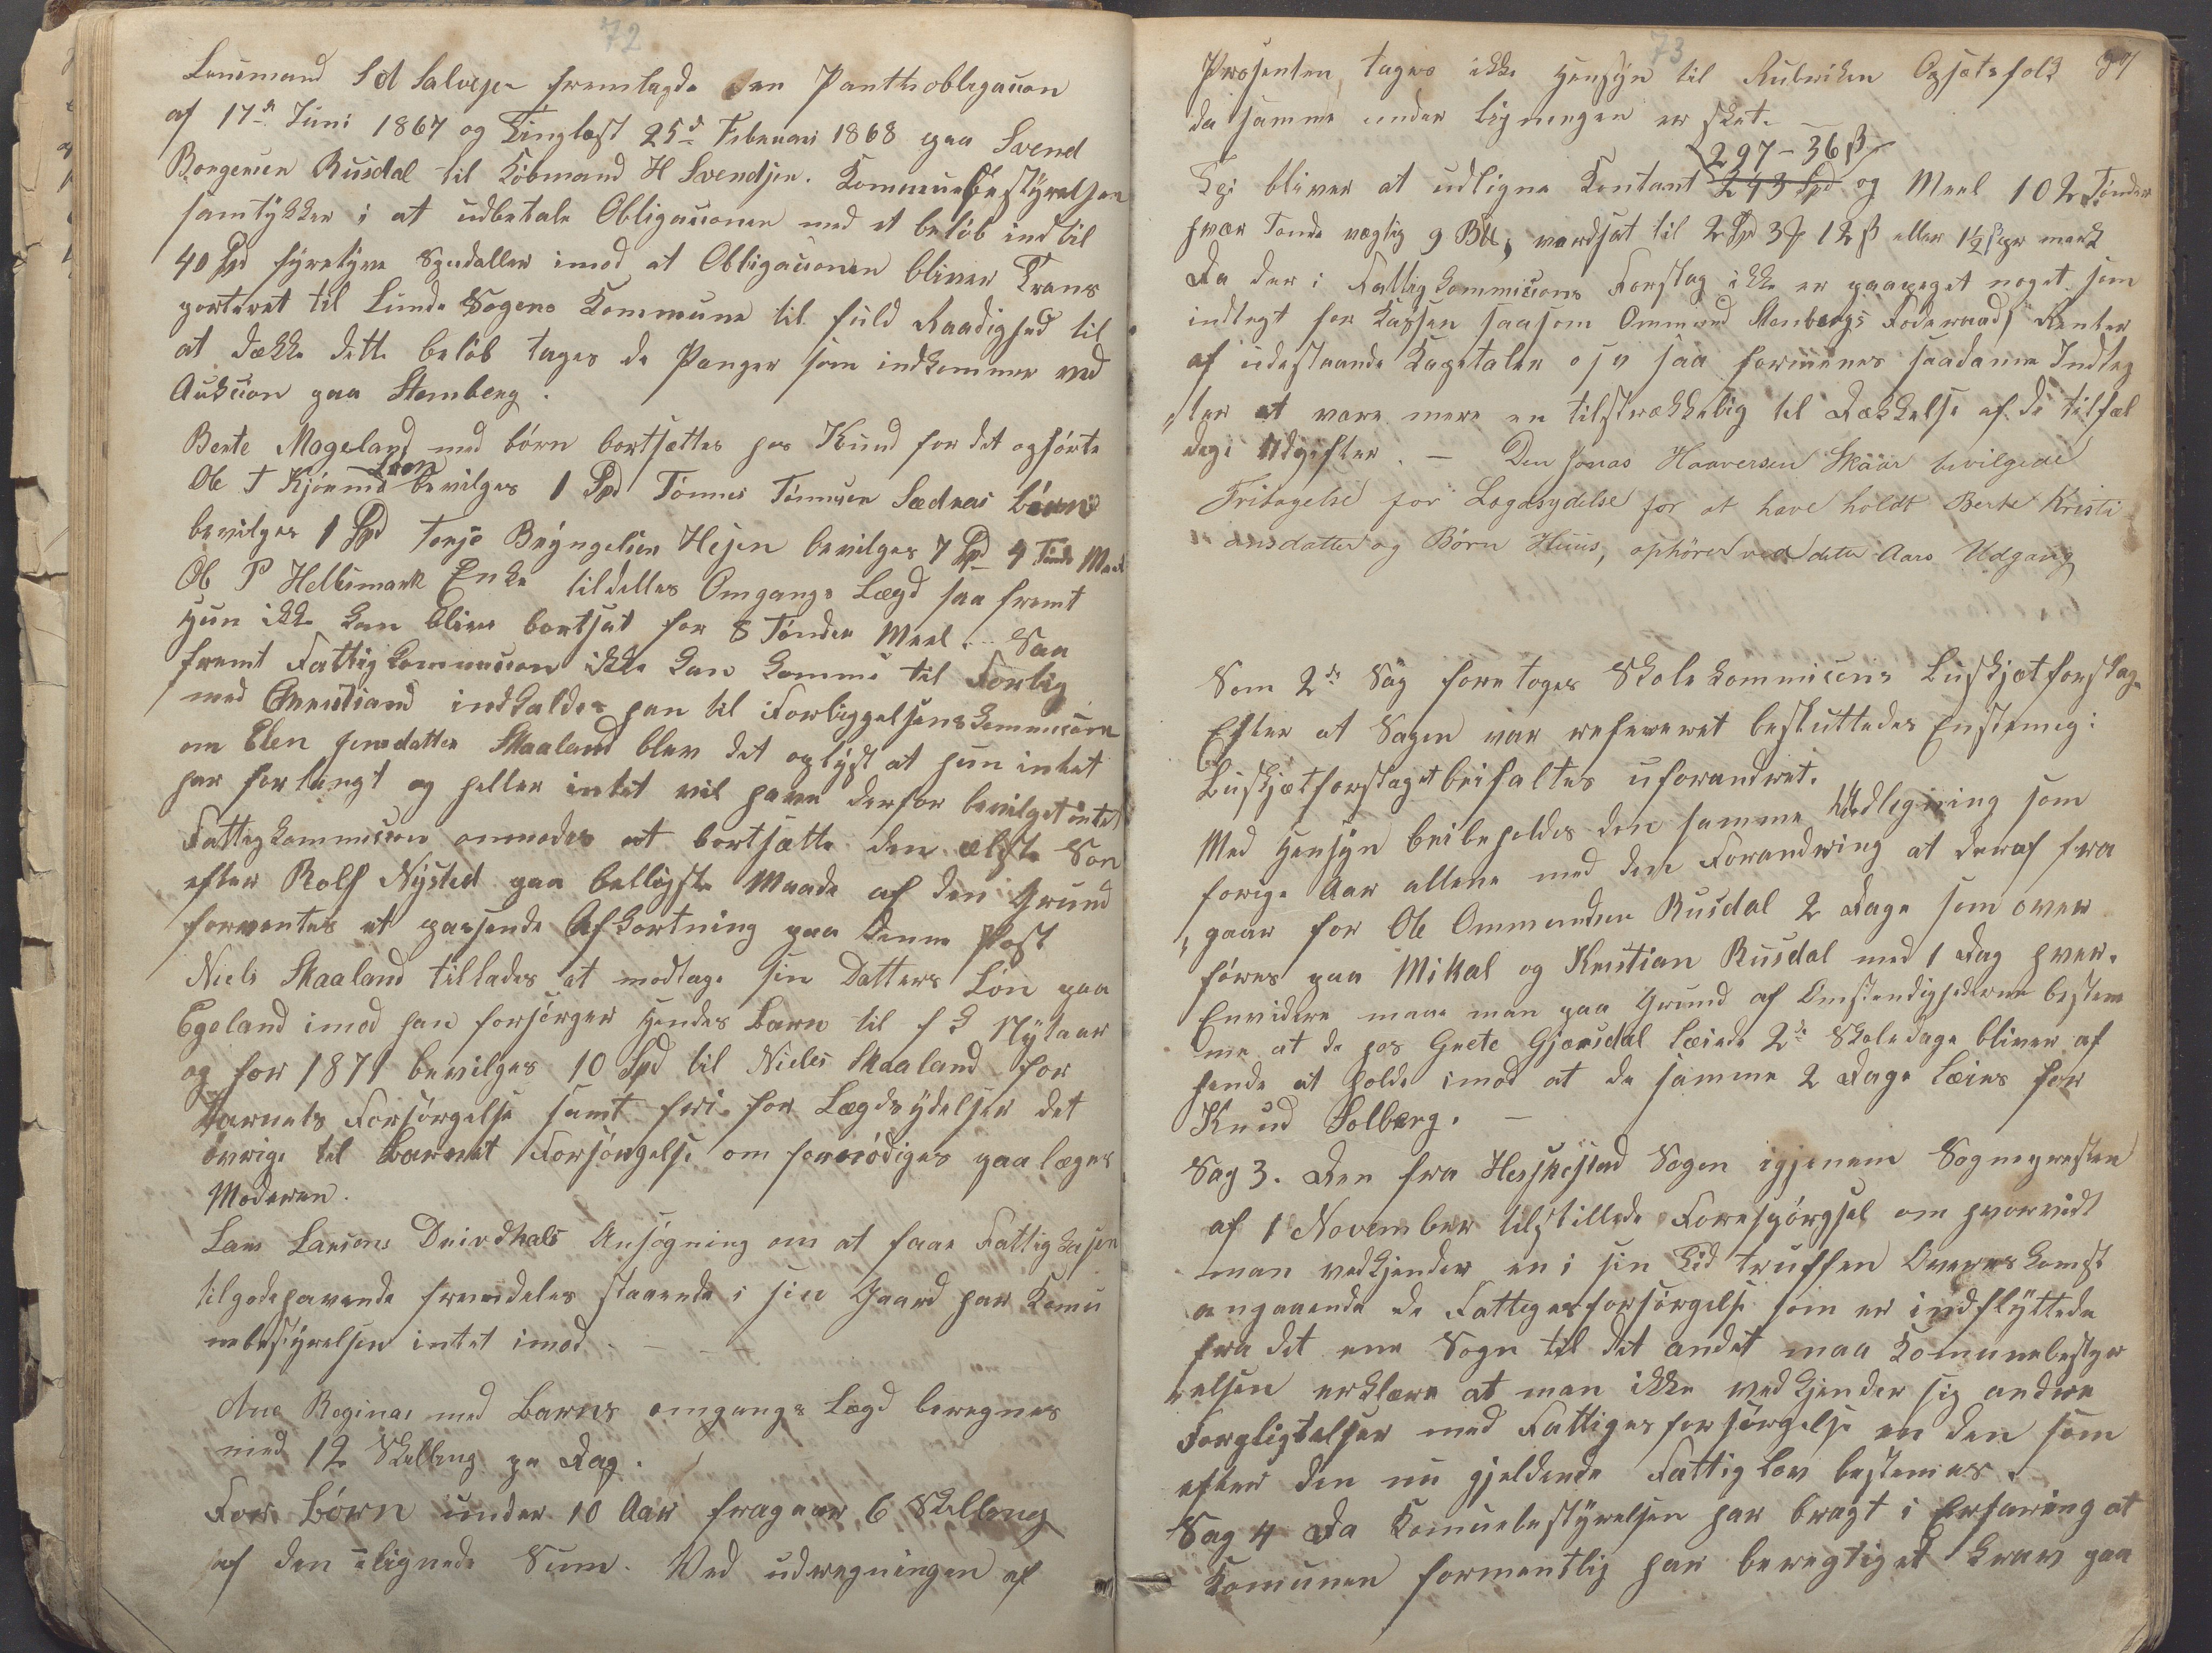 72
Lensmand S A Salvesen fremlagde en Panthobligacion
af 17de Juni 1867 og Tinglæst 25de Februar 1868 paa Svend
Borgersen Rusdal til Kjøbmand H Svendsen. Kommunebestyrelsen
samtykker i at udbetale Obligacionen med et beløb indtil
40 Spd fyretyve Spedaller imod at Obligacionen bliver Trans
porteret til Lunde Sogens Kommune til fuld Raadighed til
at dække dette beløb tages de Penger som indkommer ved
Aukcion paa Stemberg.
Berte Mogeland med børn bortsættes hos Knud for det opførte
Ole T Kjørmo bevilges 1 Spd Tønnes Tønnesen Sædraas børn
bevilges 1 Spd Terje Bryngelsen Hejen bevilges 7 Spd 4 Tønde Meel
Ole P Hellesmark Enke tildelles Omgangs Lægd saa fremt
hun ikke kan blive bortsat for 8 Tønder Meel. Saa
fremt Fattigkommission ikke kan komme til Forlig
med Christiand indkaldes han til Forliggelsenskommission
om Elen Jensdatter Skaaland blev det oplyst at hun intet
har forlangt og heller intet vil have derfor bevilget intet
Fattigkommission anmodes at bortsætte den ælste Søn
efter Rolf Nysted paa belligste Maade af den Grund
forventes et passende Afkortning paa denne Post
Niels Skaaland tillades at modtage sin Datters Løn paa
Egeland imod han forsørger hendes Barn til f k Nytaar
og for 1871 bevilges 10 Spd til Nieles Skaaland for
Barnets Forsørgelse samt fri for Lægdsydelser det
øvrige til Barnet Forsørgelse om fornødiges paa læges
Moderen.
Lars Larsens Drivdhals Ansøgning om at faae Fattigkasen
tilgodehavende fremdeles staaende i sin Gaard har Komu
nebestyrelsen intet imod. —
Ane Reginas med Barns omgangs Lægd beregnes
med 12 Skelling pr Dag.
For børn under 10 Aar fragaar 6 Skelling
af den lignede Sum. Ved udregningen af
73
Prosenten tages ikke Hensyn til Rubriken Opsætsfolk
da samme under ligningen er sket. —
297 – 36 ß
Tgi bliver at udligne Kontant 243 Spd og Meel 102 Tønder
hver Tønde vægtig 9 B℔, værdsat til 2 Spd 3 12 ß eller 1½ Spr mark
Da der i Fattigkommisions Forslag ikke er paapeget noget som
indtegt for Kassen saasom Ommund Stenbergs Foderaad, Renter
af udestaaende Kapetaler o s v saa formenes saadanne Indteg
ter at være mere en tilstrækkelig til Dækkelse af de tilfæl
dege Udgifter. — Den Jonas Haaversen Skaar bevilgede
Fritagelse for Legdsydelse for at have holdt Berte Kristi
ansdatter og Børn Huus, ophører ved dette Aars Udgang
Som 2de Sag foretoges Skolekommissions Buskjætforslag
Efter at Sagen var refereret besluttedes Enstemig:
Buskjætforslaget beifaltes uforandret.
Med Hensyn beibeholdes den samme Udlegning som
forige Aar allene med den Forandring at deraf fra
gaar for Ole Ommundsen Rusdal 2 Dage som over
føres paa Mikal og Kristian Rusdal med 1 Dag hver.
Envidere maae man paa Grund af Omstendighederne bestem
me at de hos Grete Gjærsdal læiede 2de Skoledage bliver af
hende at holde imod at de samme 2 Dage læies for
Knud Solberg. —
Sag 3. Den fra Heskestad Sogen igjenem Sognepresten
af 1 November tilstillede Forespørgsel om hvorvidt
man vedkjender en i sin Tid truffen Overenskomst
angaaende de Fattiges forsørgelse som er indflyttede
fra det ene Sogn til det andet maa Komunebestyr
relsen erklære at man ikke vedkjender sig andre
Forpligtelser med Fattiges forsørgelse en den som
efter den nu gjeldende Fattiglov bestemes.
Sag 4 Da Komunebestyrelsen har bragt i Erfaring at
Komunen formentlig har beregtiget Krav paa